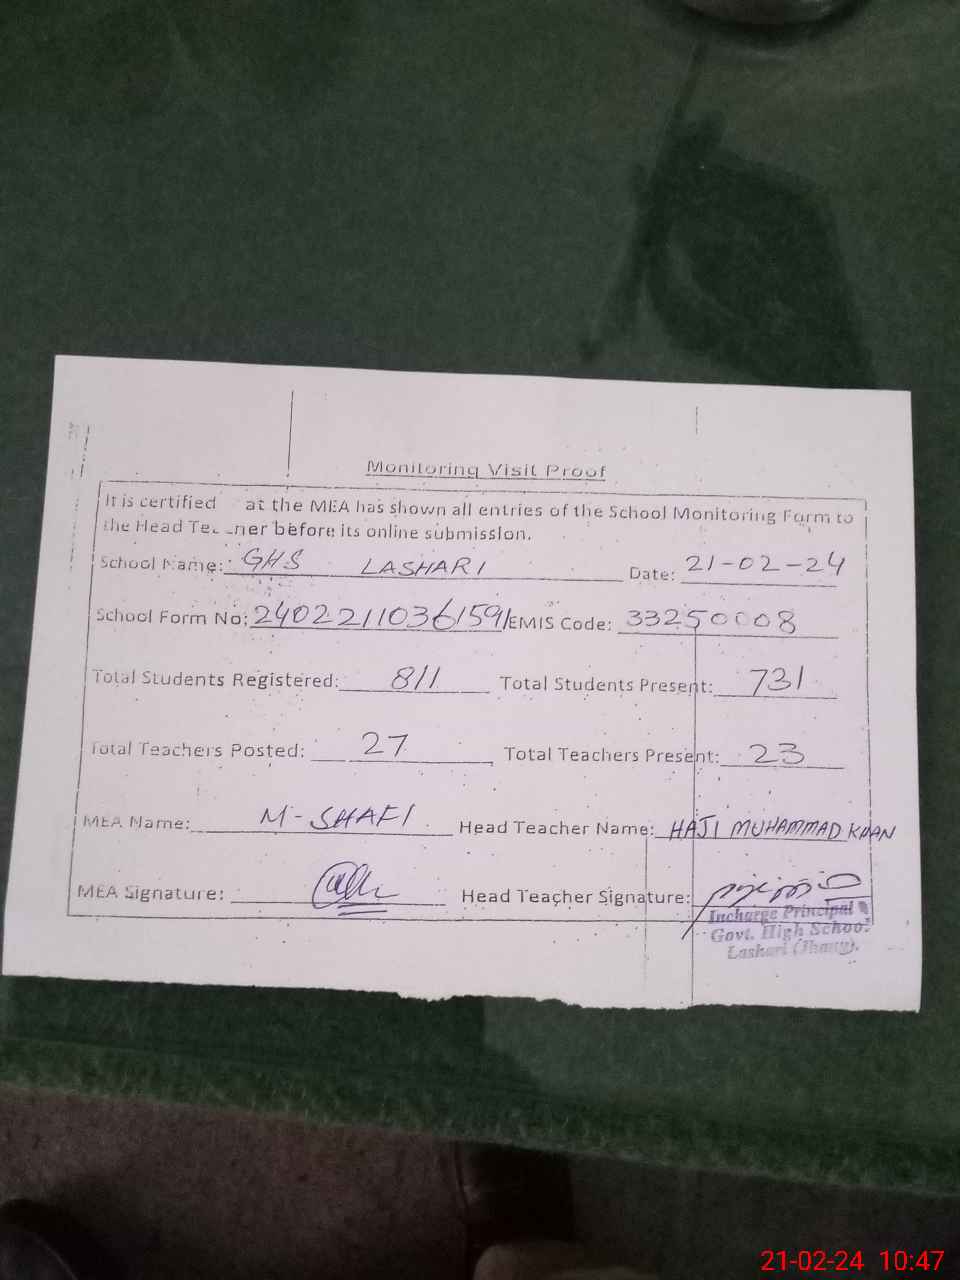 Monitoring Visit Proof
It is certified at the MEA has shown all entries of the School Monitoring Form to
the Head before its online submission.
School Name: GHS LASHARI Date: 21-02-24
School Form No: 24022110361591 EMIS Code: 33250008
Total Students Registered: 811 Total Students Present: 731
Total Teachers Posted: 27 Total Teachers Present: 23
MEA Name: M-SHAFI Head Teacher Name: HAJI MUHAMMAD KHAN
MEA Signature: Head Teacher Signature:
Incharge Principal
Govt. High School
Lashari (Jhang).
21-02-24 10:47